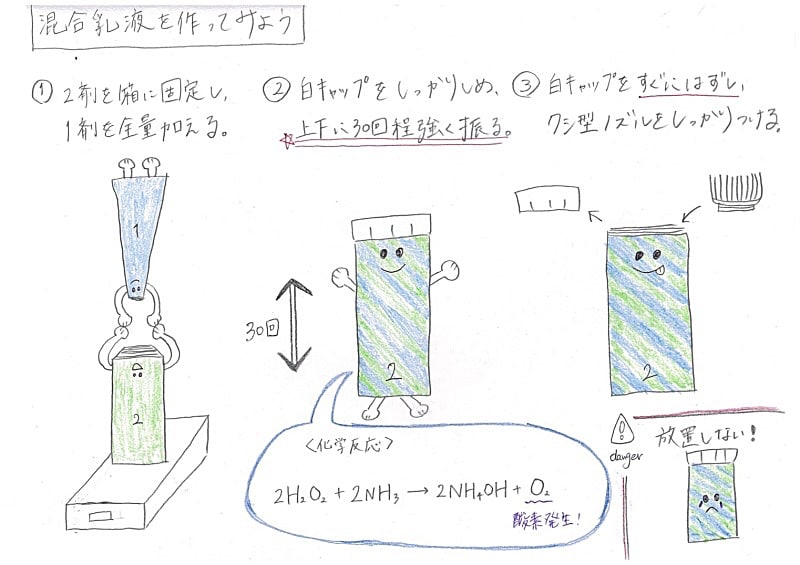 混合乳液を作ってみよう
① 2剤を箱に固定し、
1剤を全量加える。
② 白キャップをしっかりしめ、
☆上下に30回程強く振る。
③ 白キャップをすぐにはずし、
クシ型ノズルをしっかりつける。
1
2
30回
2
2
〈化学反応〉
2H₂O₂ + 2NH₃ → 2NH₄OH + O₂
酸素発生!
danger
放置しない!